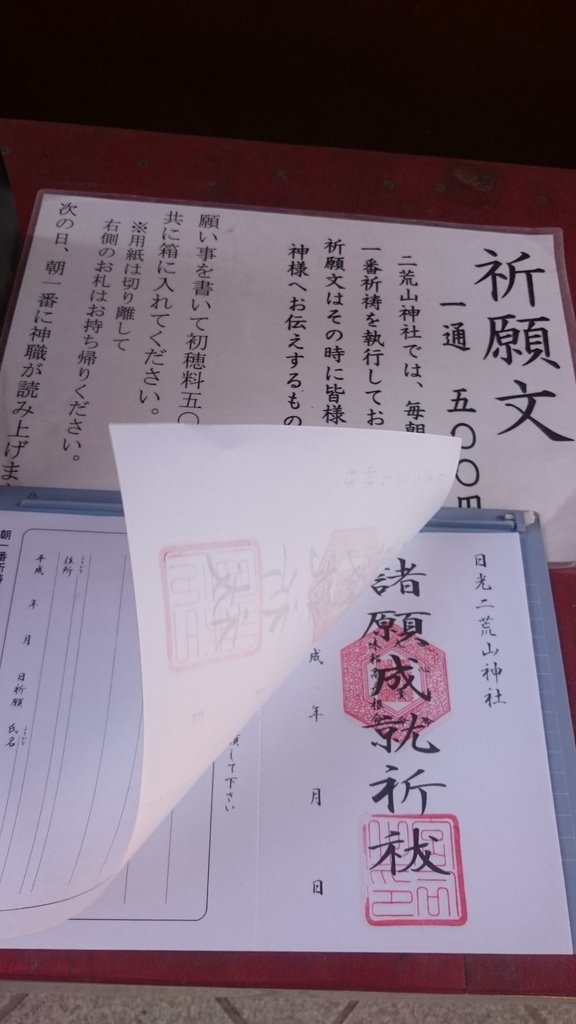 祈願文
一通 五〇〇円
二荒山神社では、毎朝
一番祈祷を執行してお
祈願文はその時に皆様
神様へお伝えするもの
願い事を書いて初穂料五〇
共に箱に入れてください。
※用紙は切り離して
右側のお札はお持ち帰りください。
次の日、朝一番に神職が読み上げま
日光二荒山神社
諸願成就祈祓
成 年 月 日
して下さい
住所
平成 年 月 日祈願 氏名
朝一番祈